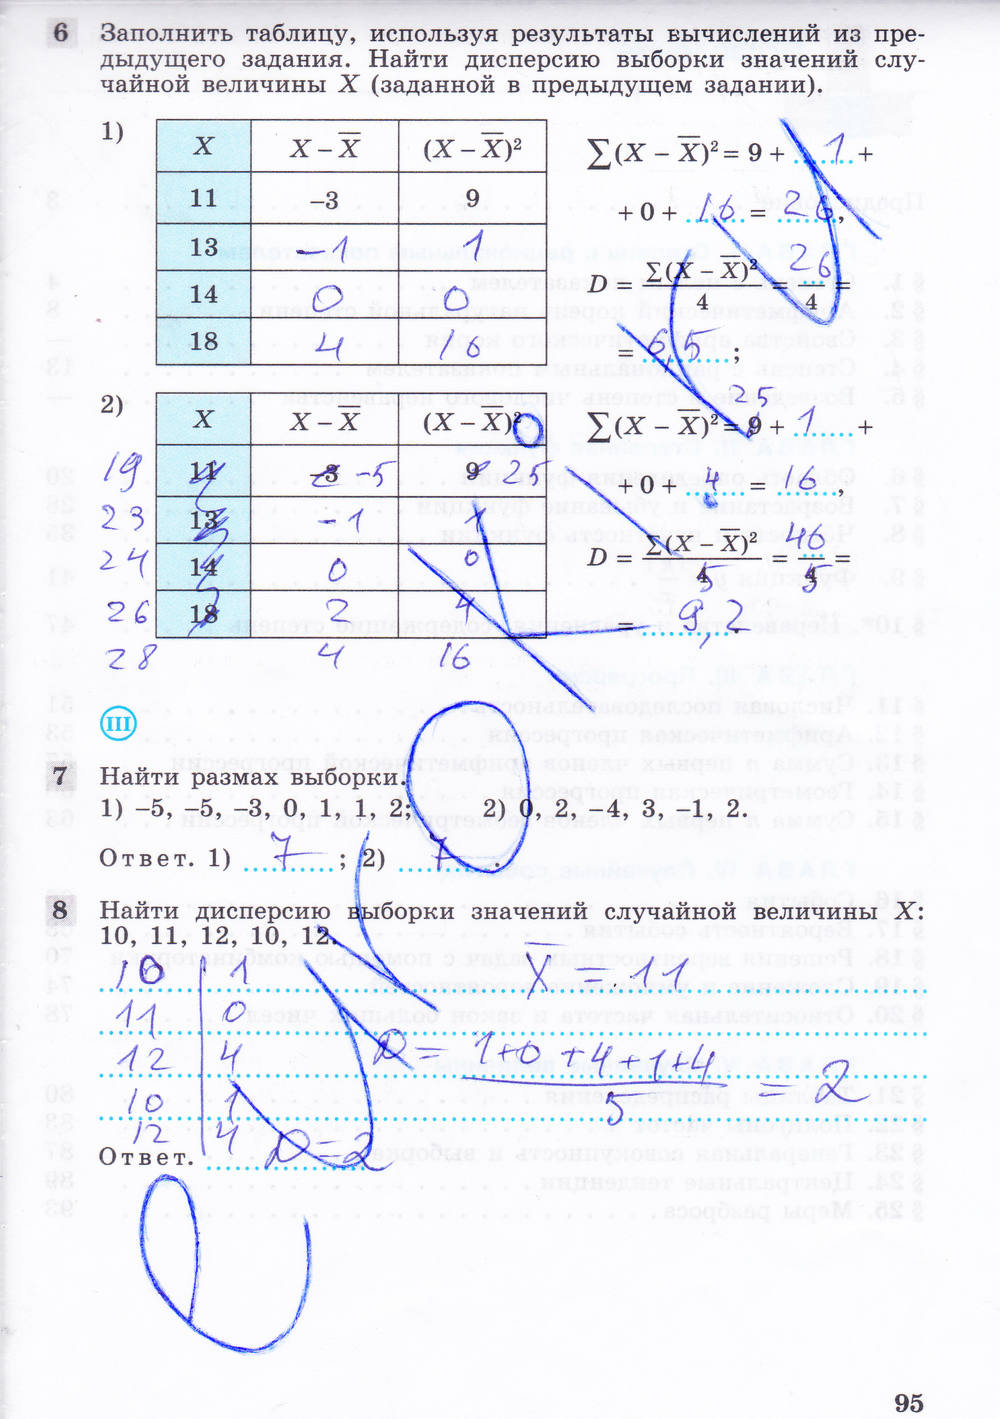 6 Заполнить таблицу, используя результаты вычислений из пре-
дыдущего задания. Найти дисперсию выборки значений слу-
чайной величины X (заданной в предыдущем задании).
1)
X X – X̅ (X – X̅)²
11 –3 9
13 –1 1
14 0 0
18 4 16
∑(X – X̅)² = 9 + 1 +
+ 0 + 16 = 26,
D = ∑(X – X̅)²/4 = 26/4 =
= 6,5 ;
2)
X X – X̅ (X – X̅)²
19 11 –3 –5 9 25
23 13 –1 1
24 14 0 0
26 18 2 4
28 4 16
25
∑(X – X̅)² = 9 + 1 +
+ 0 + 4 16,
D = ∑(X – X̅)²/5 = 46/5 =
= 9,2
III
7 Найти размах выборки.
1) –5, –5, –3, 0, 1, 1, 2; 2) 0, 2, –4, 3, –1, 2.
Ответ. 1) 7 ; 2) 7 .
8 Найти дисперсию выборки значений случайной величины X:
10, 11, 12, 10, 12.
10 | 1 X̅ = 11
11 | 0
12 | 4 D = 1+0+4+1+4/5 = 2
10 | 1
12 | 4
Ответ. D = 2
95